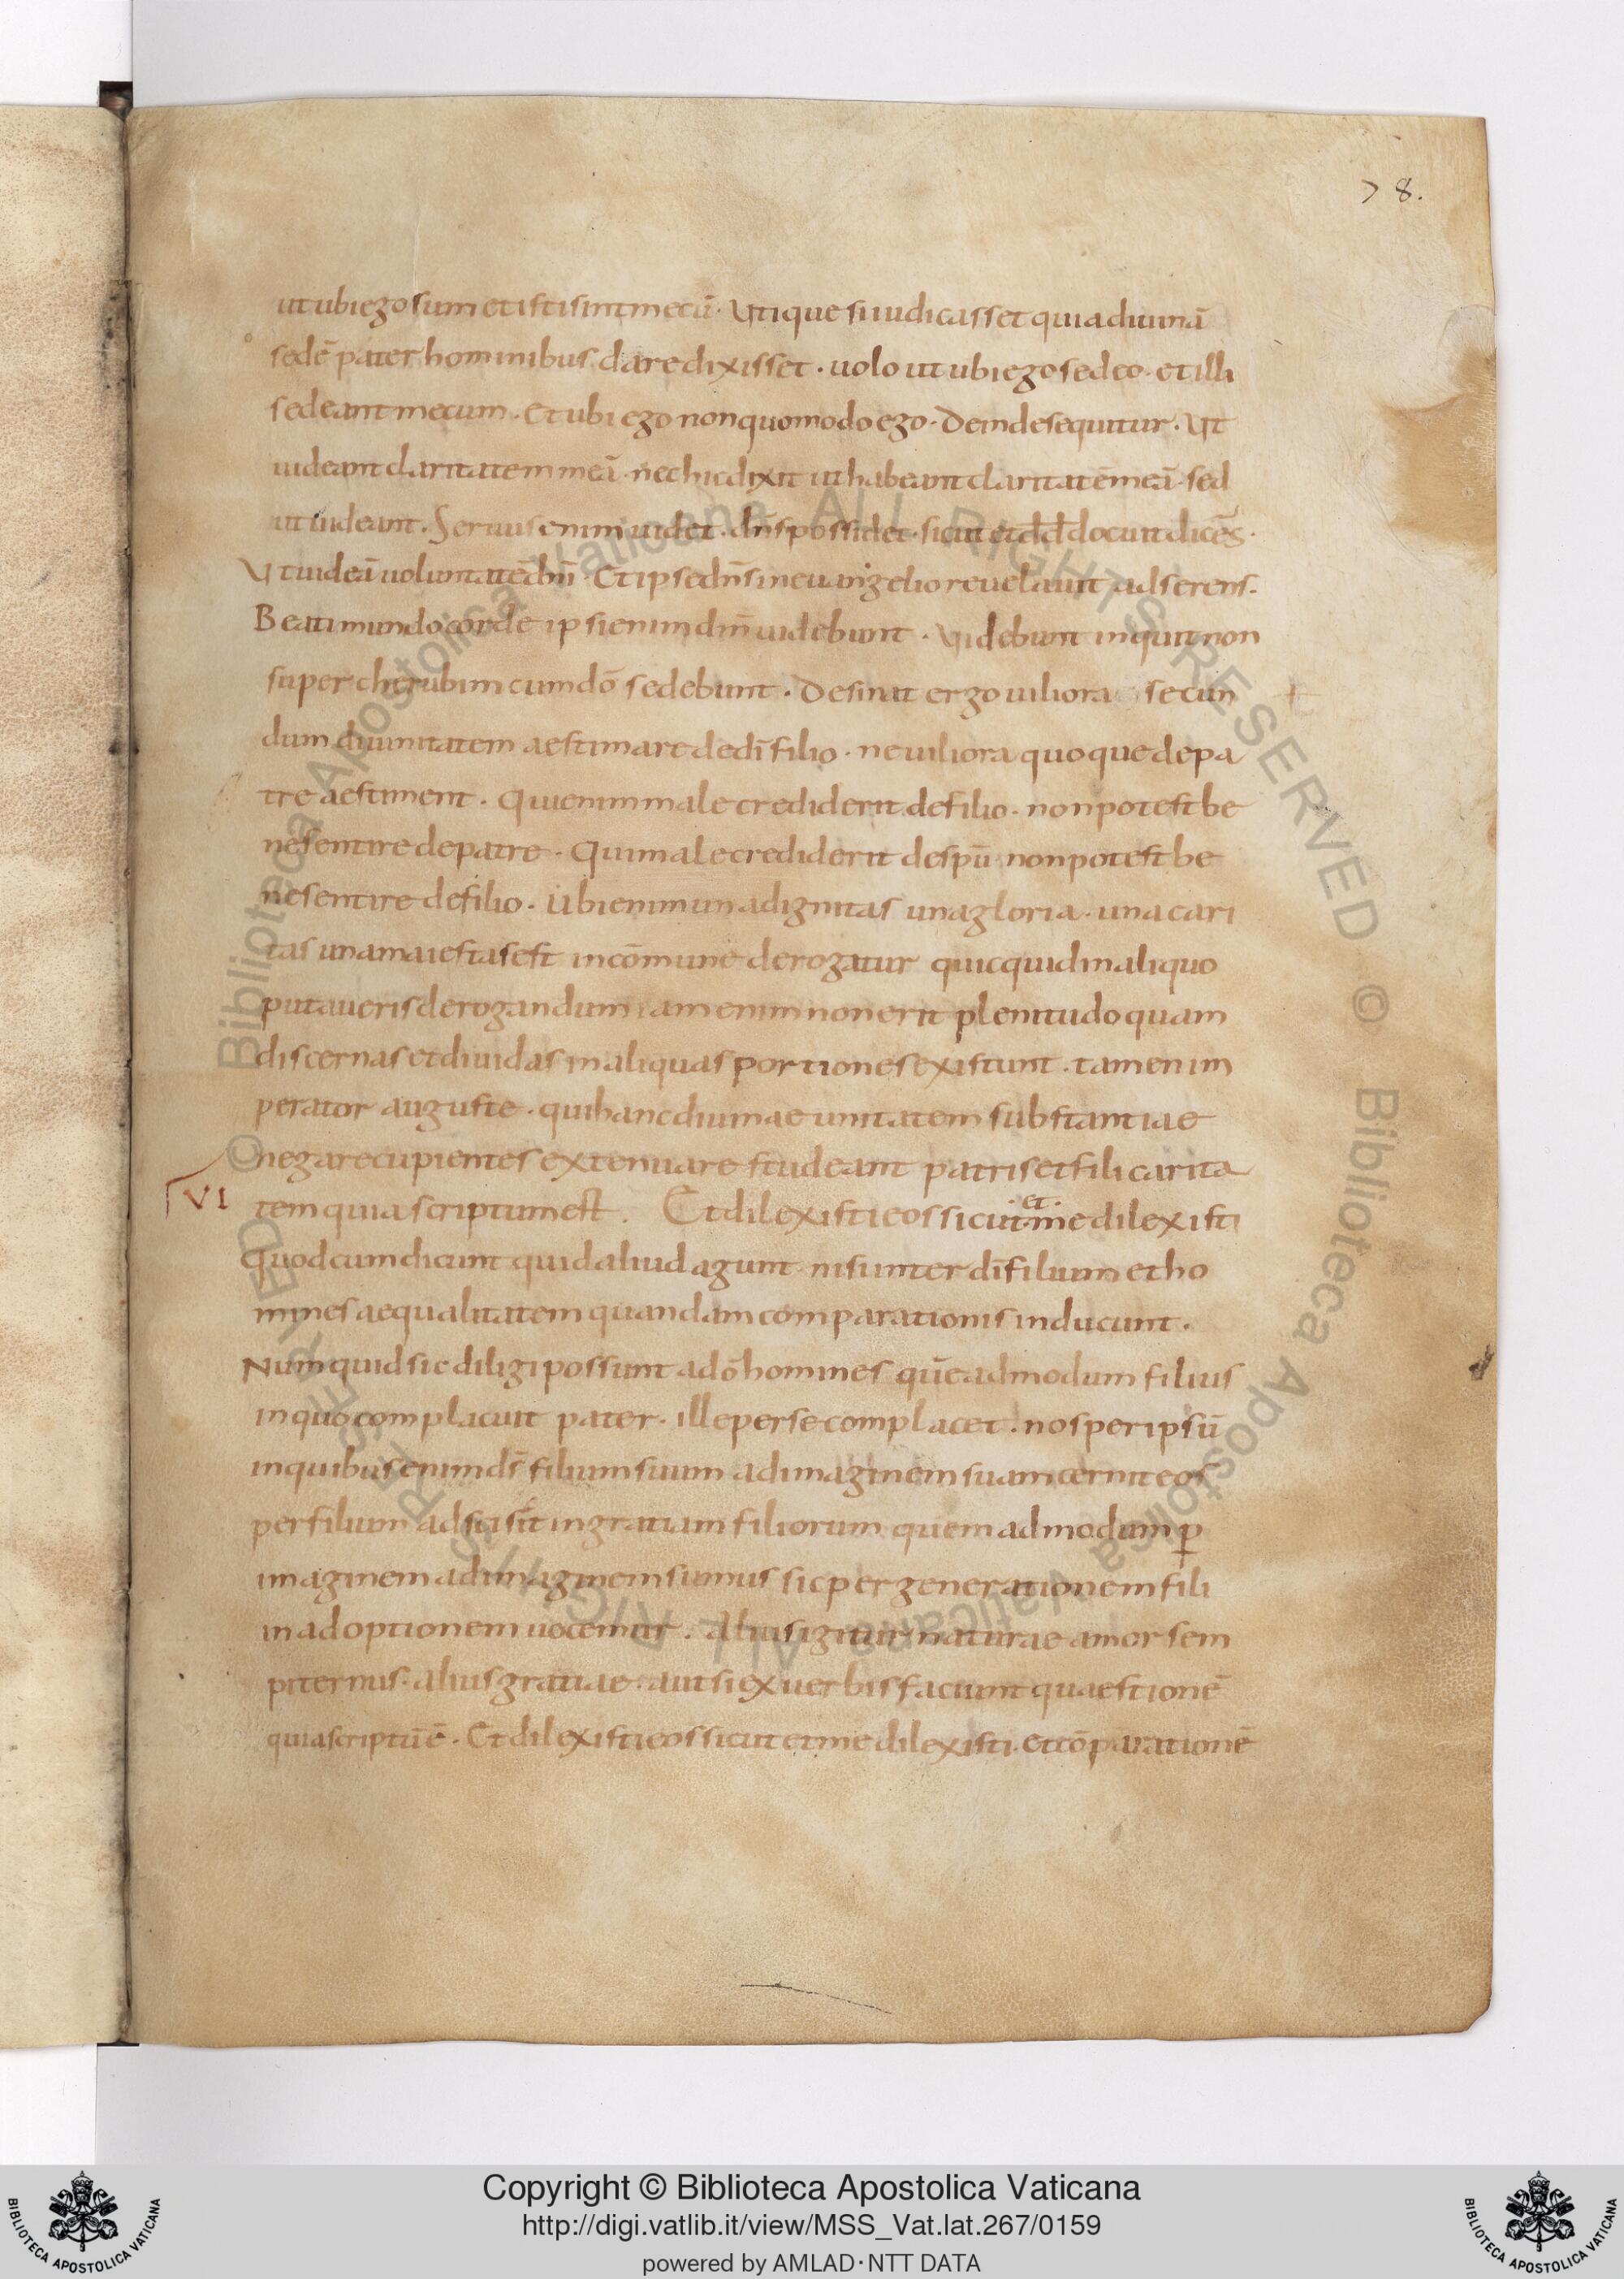 78.
ut ubi ego sum et isti sint mecū. Utique si iudicasset quia diuinā
sedē pater hominibus dare dixisset. uolo ut ubi ego sedeo. et illi
sedeant mecum. et ubi ego non quomodo ego. Deinde sequitur. Ut
uideant claritatem meā. nec hic dixit ut habeant claritatē meā. sed
ut uideant. Seruus enim uidet. dn̄s possidet. sicut et dd docuit dicēs.
Ut uideā uoluntatē dn̄i. Et ipse dn̄s in euangelio reuelauit adserens.
Beati mundo corde ipsi enim dm̄ uidebunt. Videbunt inquit non
super cherubim cum dō sedebunt. Desinat ergo uiliora secun
dum diuinitatem aestimare de dī filio. ne uiliora quoque de pa
tre aestiment. Qui enim male crediderit de filio. non potest be
ne sentire de patre. Qui male crediderit de spū non potest be
ne sentire de filio. Ubi enim una dignitas una gloria. una cari
tas una maiestas est in cōmune derogatur quicquid in aliquo
putaueris derogandum iam enim non erit plenitudo quam
discernas et diuidas in aliquas portiones existunt. tamen im
perator auguste. qui hanc diuinae unitatem substantiae
negare cupientes extenuare studeant patris et fili carita
VI
tem quia scriptum est. Et dilexisti eos sicut .et. me dilexisti
Quod cum dicunt quid aliud agunt nisi inter dī filium et ho
mines aequalitatem quandam comparationis inducunt.
Numquid sic diligi possunt a dō homines quēadmodum filius
in quo complacuit pater. ille per se complacet. nos per ipsū
in quibus enim ds̄ filium suum ad imaginem suam cernit eos
per filium adscisīt in gratiam filiorum quemadmodum ꝑ
imaginem ad imaginem sumus sic per generationem fili
in adoptionem uocemur. Alius igitur naturae amor sem
piternus. alius gratiae. aut si ex uerbis faciunt quaestionē
quia scriptū ē. Et dilexisti eos sicut et me dilexisti. et cōparationē
© Biblioteca Apostolica Vaticana ALL RIGHTS RESERVED © Biblioteca Apostolica Vaticana ALL RIGHTS RESERVED
Copyright © Biblioteca Apostolica Vaticana
http://digi.vatlib.it/view/MSS_Vat.lat.267/0159
powered by AMLAD·NTT DATA
BIBLIOTECA APOSTOLICA VATICANA
BIBLIOTECA APOSTOLICA VATICANA